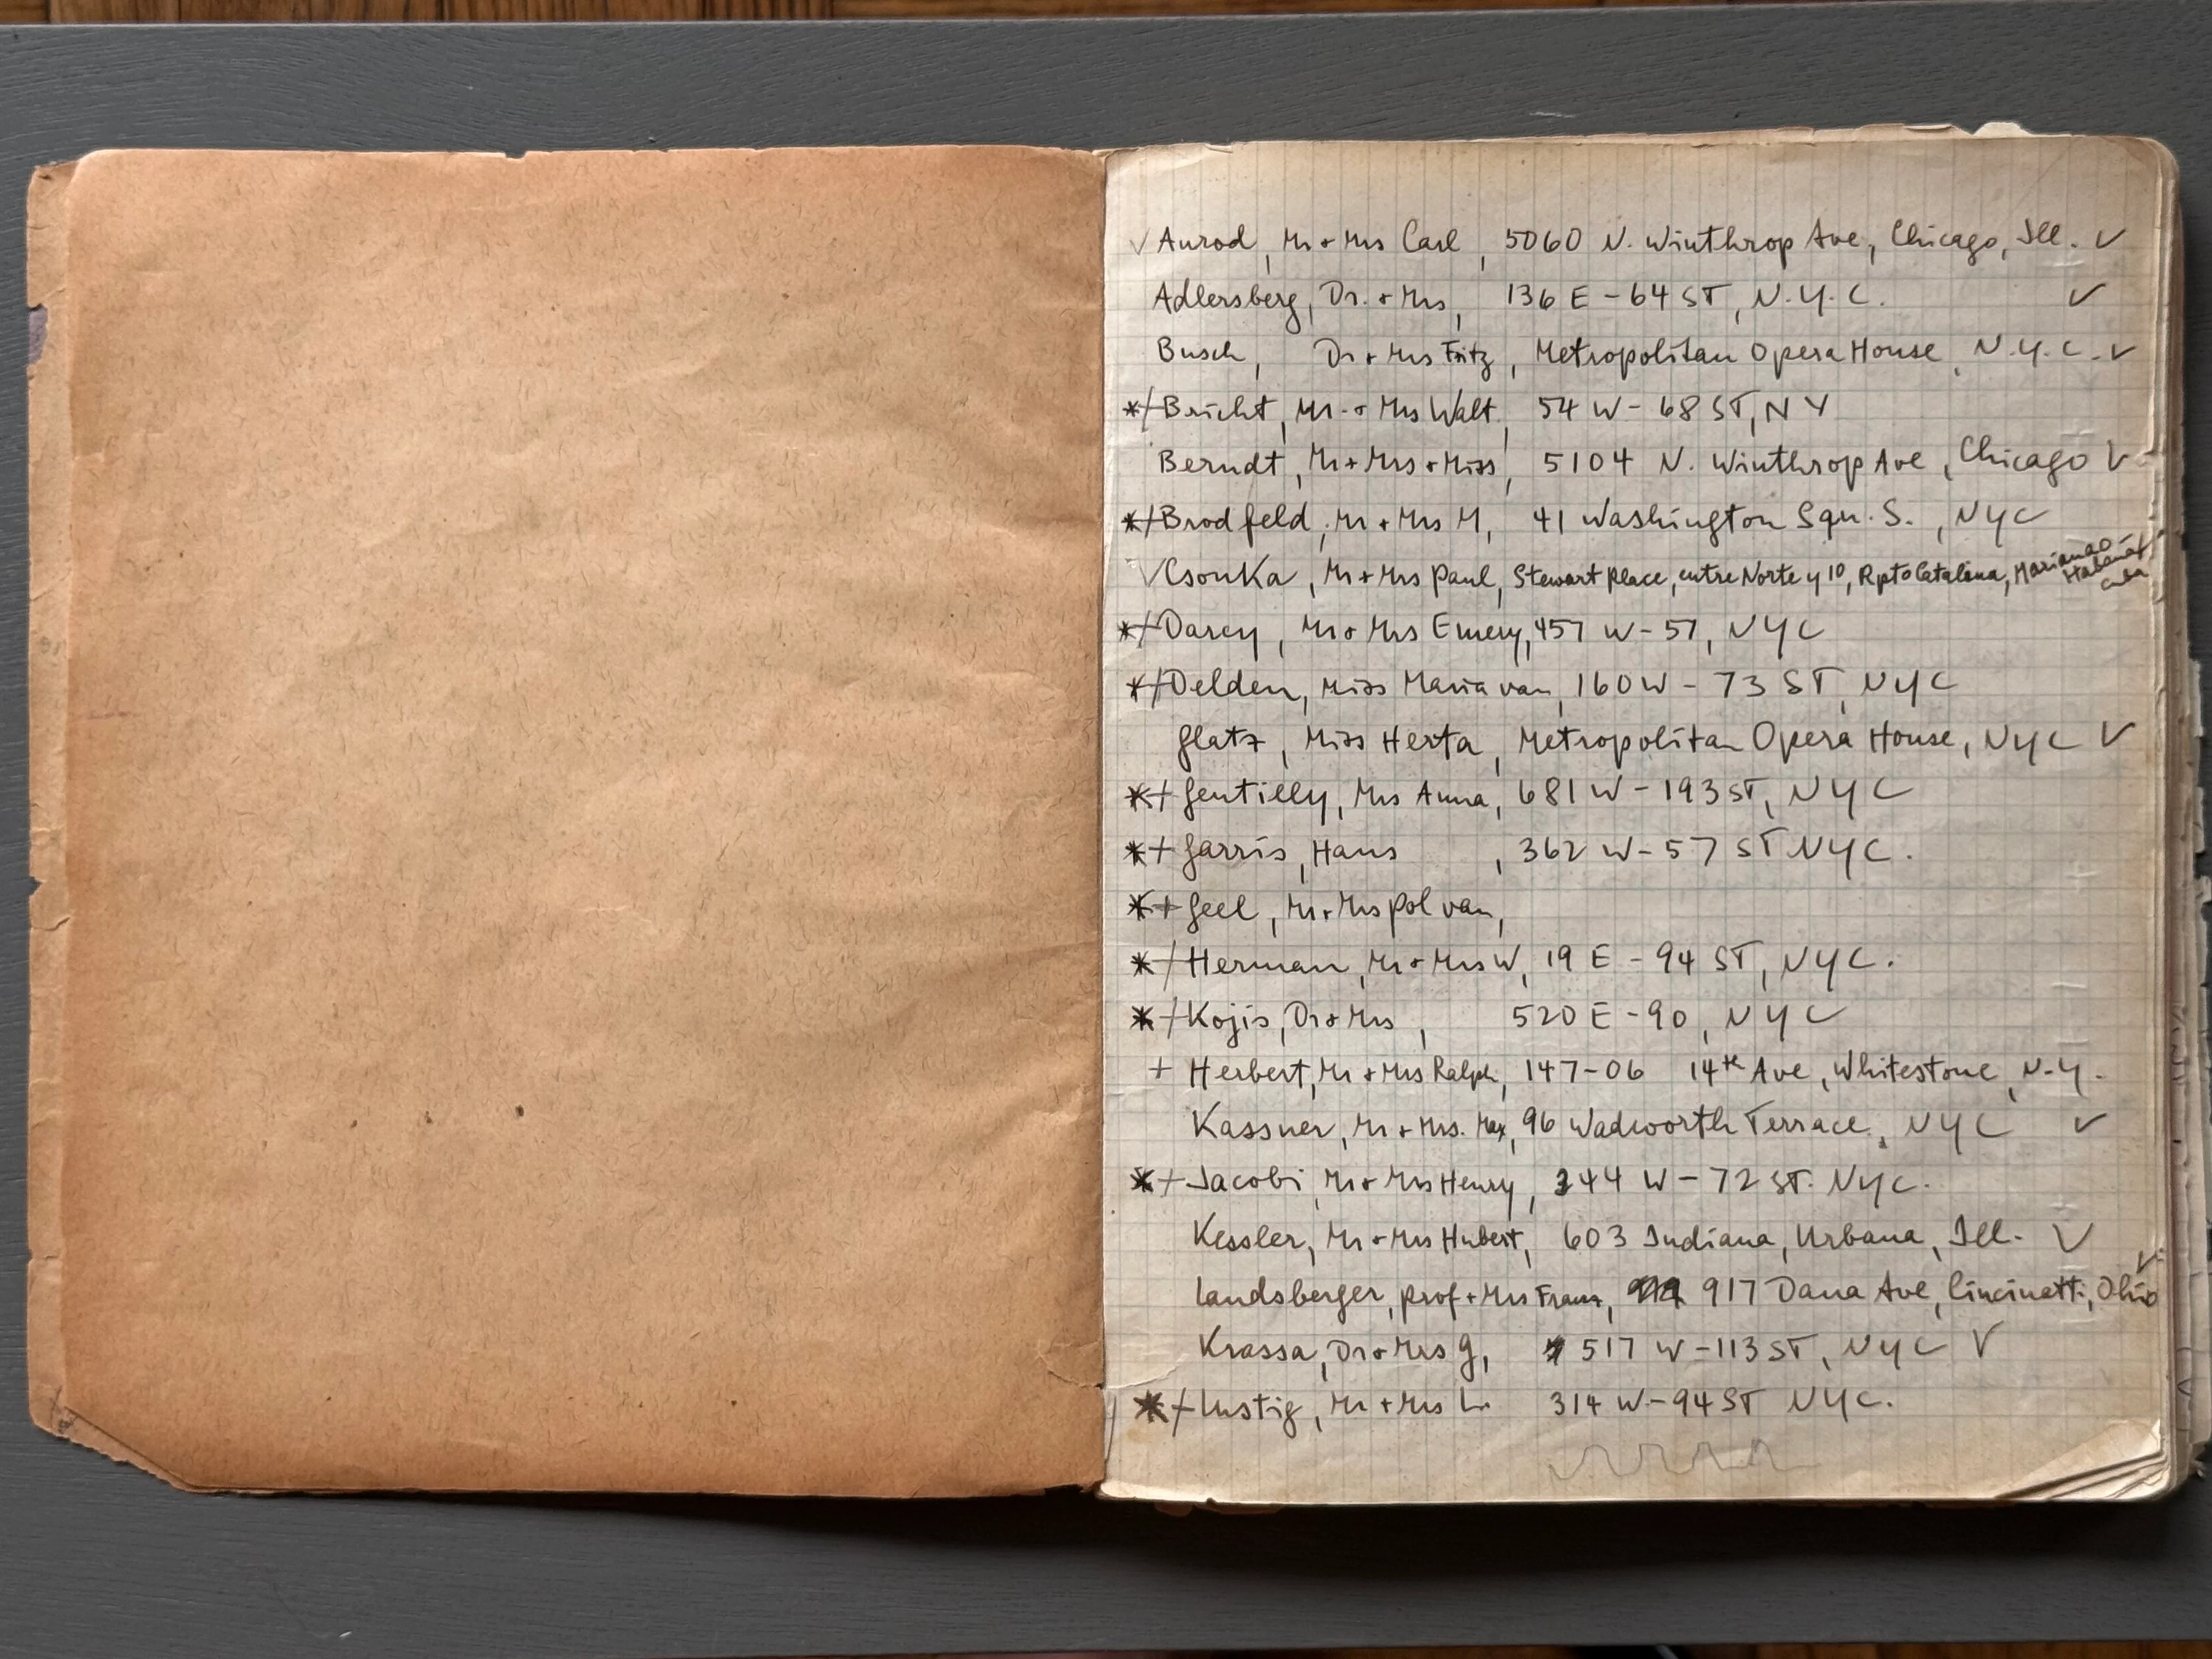 ✓ Aurod, Mr + Mrs Carl, 5060 N. Winthrop Ave, Chicago, Ill. ✓
Adlersberg, Dr. + Mrs, 136 E - 64 ST, N.Y.C. ✓
Busch, Dr + Mrs Fritz, Metropolitan Opera House, N.Y.C. ✓
*/ Bricht, Mr. + Mrs Walt. 54 W - 68 ST, NY
Berndt, Mr + Mrs + Miss, 5104 N. Winthrop Ave, Chicago ✓
*/ Brodfeld, Mr + Mrs M, 41 Washington Squ. S., NYC
✓ Csonka, Mr + Mrs Paul, Stewart Place, entre Norte y 10, Rpto Catalina, Marianao - Habana Cuba
*/ Darcy, Mr + Mrs Emery, 457 W - 57, NYC
*/ Delden, Miss Maria van, 160 W - 73 ST, NYC
Glatz, Miss Herta, Metropolitan Opera House, NYC ✓
*+ Gentilly, Mrs Anna, 681 W - 193 ST, NYC
*+ Garris, Hans, 362 W - 57 ST NYC.
*+ Geel, Mr + Mrs Pol van,
*/ Herman, Mr + Mrs W, 19 E - 94 ST, NYC.
*/ Kojis, Dr + Mrs, 520 E - 90, NYC
+ Herbert, Mr + Mrs Ralph, 147-06 14th Ave, Whitestone, N.Y.
Kassner, Mr + Mrs. Max, 96 Wadworth Terrace, NYC ✓
*+ Jacobi, Mr + Mrs Henry, 244 W - 72 ST. NYC.
Kessler, Mr + Mrs Hubert, 603 Indiana, Urbana, Ill. ✓
Landsberger, prof + Mrs Franz, 917 Dana Ave, Cincinatti, Ohio ✓
Krassa, Dr + Mrs G, 517 W - 113 ST, NYC ✓
*/ Lustig, Mr + Mrs L. 314 W - 94 ST NYC.